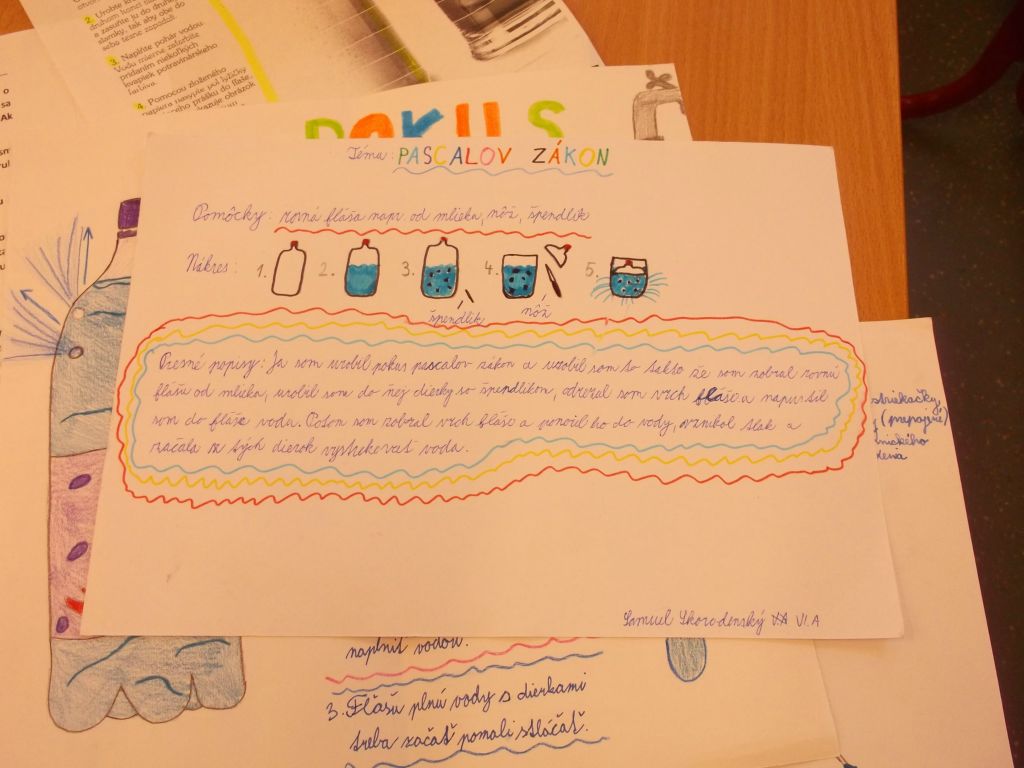 2. Urobte
druhom konci
a zasuňte ju do druhej
slamky, tak aby do
seba tesne zapadali.
3. Naplňte pohár vodou
Vodu mierne zafarbite
pridaním niekoľkých
kvapiek potravinárskeho
farbiva
4. Pomocou zloženého
papiera nasypte pol lyžičky
prášku do fľaše.
obrázok
o
sa
Ak
POKUS
Téma: PASCALOV ZÁKON
Pomôcky: rovná fľáša napr od mlieka, nôž, špendlík
Nákres: 1. 2. 3. 4. 5.
špendlík nôž
Presné popisy: Ja som urobil pokus pascalov zákon a urobil som to takto že som zobral rovnú
fľášu od mlieka, urobil som do nej dierky so špendlíkom, odrezal som vrch fľáše a napustil
som do fľáše vodu. Potom som zobral vrch fľáše a ponoril ho do vody, vznikol tlak a
začala z tých dierok vystrekovať voda.
Samuel Skorodenský VI.A
striekačky,
(prepojené)
kena
naplniť vodou.
3. Fľašu plnú vody s dierkami
treba začať pomali stláčať.